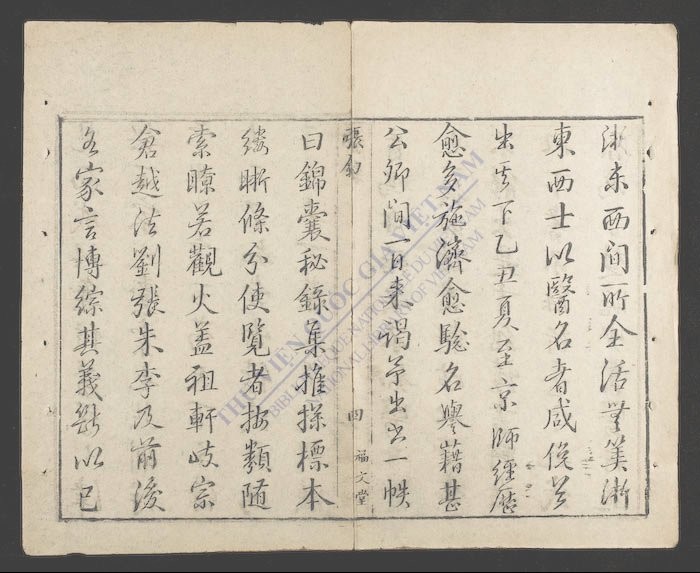 浙東西間所全活無算浙
東西士以醫名者咸
出其下乙丑夏至京師經歷
愈多施濟愈驗名譽藉甚
公卿間一日來謁予出書一帙
張敘
四
福文堂
曰錦囊秘錄集推探標本
縷晰條分使覽者按類隨
索瞭若觀火蓋祖軒岐宗
倉越法劉張朱李及前後
各家言博綜其義斷以己
THƯ VIỆN QUỐC GIA VIỆT NAM
BIBLIOTHÈQUE NATIONALE DU VIETNAM
NATIONAL LIBRARY OF VIETNAM